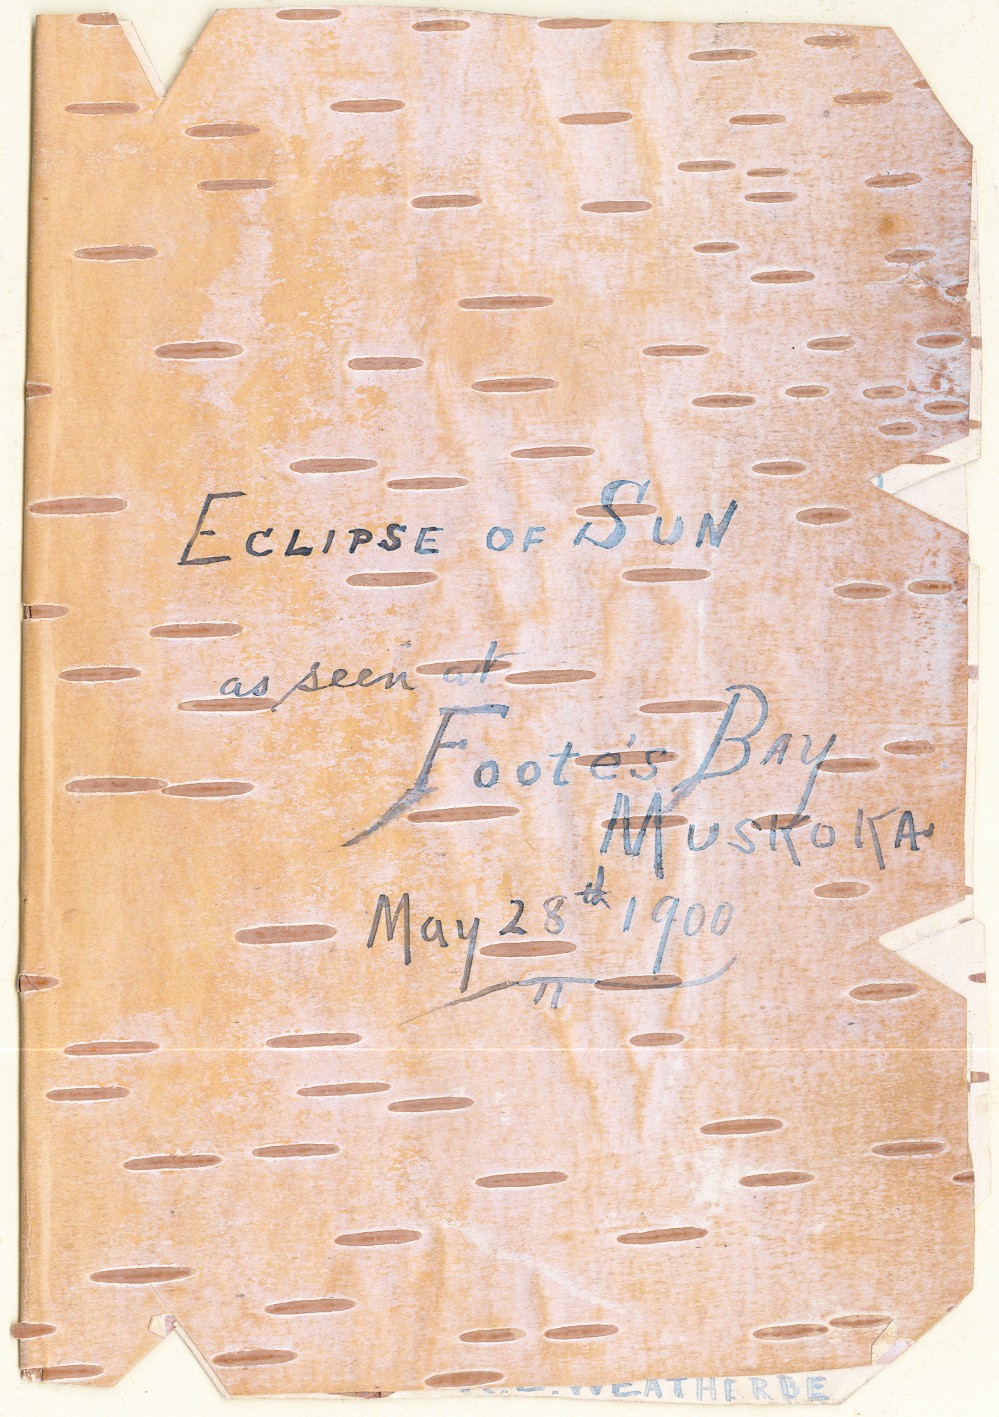 ECLIPSE OF SUN
as seen at
Foote's BAY
MUSKOKA
May 28th 1900
WEATHERBE